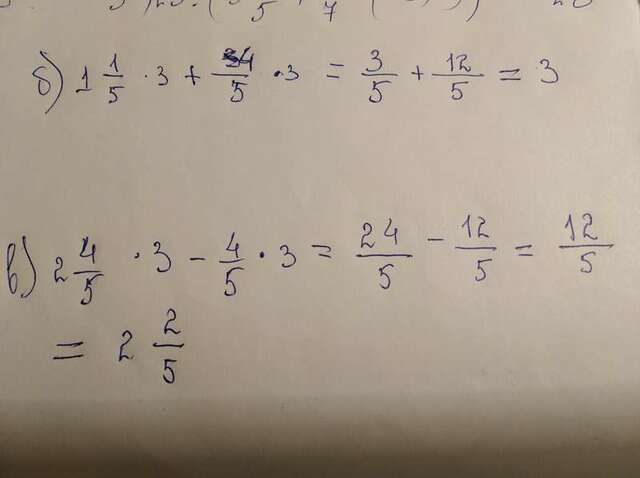 б) 1 1/5 · 3 + 4/5 · 3 = 3/5 + 12/5 = 3
в) 2 4/5 · 3 - 4/5 · 3 = 24/5 - 12/5 = 12/5
= 2 2/5